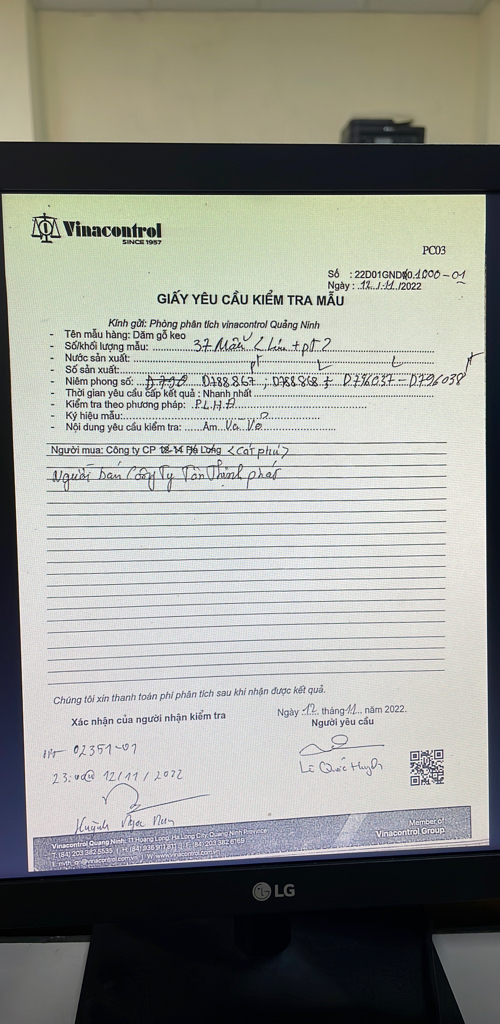 Vinacontrol
SINCE 1957
PC03
Số : 22D01GND 0.1000-01
Ngày : 12 / 11 /2022
GIẤY YÊU CẦU KIỂM TRA MẪU
Kính gửi: Phòng phân tích vinacontrol Quảng Ninh
- Tên mẫu hàng: Dăm gỗ keo
- Số/khối lượng mẫu: 37 Mẫu
- Nước sản xuất:
- Số sản xuất: pt L L pt
- Niêm phong số: D788.867 ; D788.868 ; D796037 - D796038
- Thời gian yêu cầu cấp kết quả : Nhanh nhất
- Kiểm tra theo phương pháp: P.L.H.Đ
- Ký hiệu mẫu:
- Nội dung yêu cầu kiểm tra: Ẩm Và Vỏ
Người mua: Công ty CP Hạ Long (Cát phú)
Người bán Công Ty Tân Thịnh phát
Chúng tôi xin thanh toán phí phân tích sau khi nhận được kết quả.
Xác nhận của người nhận kiểm tra
Ngày 12 tháng 11 năm 2022.
Người yêu cầu
02351-01
23: 12/11/2022
Lê Quốc Huynh
Huỳnh Ngọc
Vinacontrol Quang Ninh: 11 Hoang Long, Ha Long City, Quang Ninh Province
Member of
Vinacontrol Group
LG